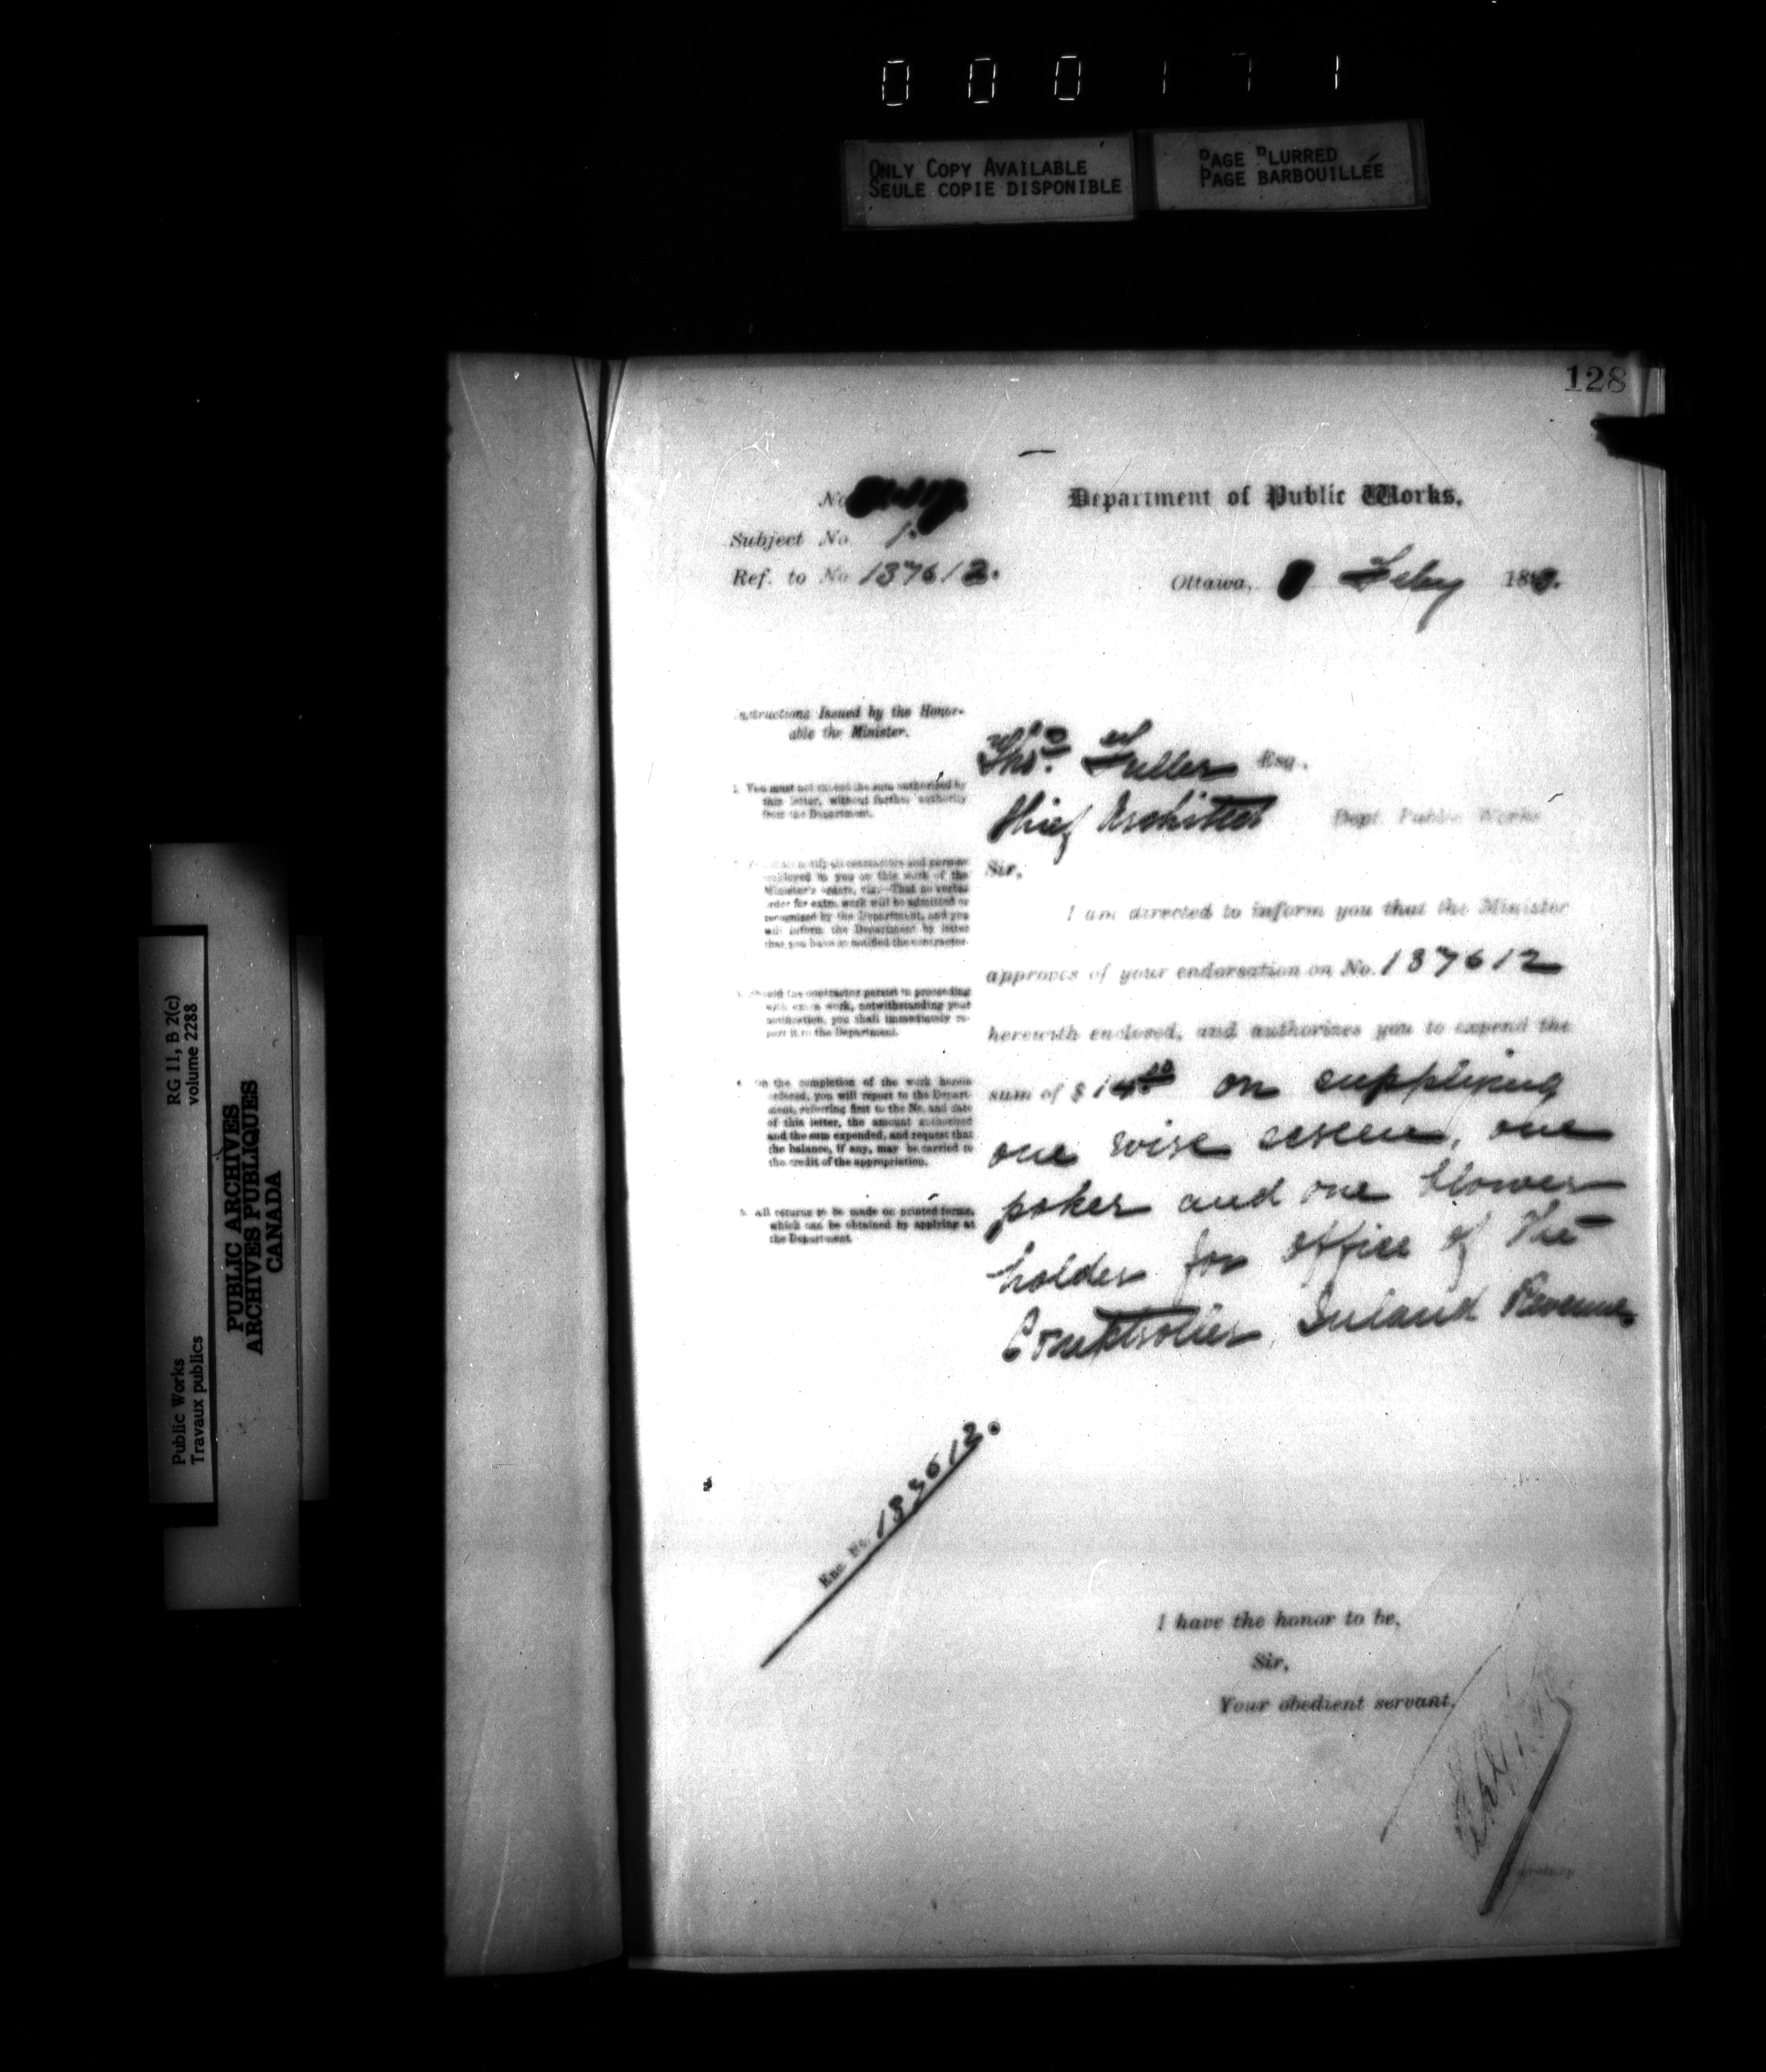 000171
ONLY COPY AVAILABLE
SEULE COPIE DISPONIBLE
PAGE BLURRED
PAGE BARBOUILLÉE
128
No
Subject No 1.
Ref. to No 137612.
Department of Public Works,
Ottawa, Feby 18
Instructions Issued by the Honor-
able the Minister.
1. You must not exceed the sum authorized by
this letter, without further authority
from the Department.
notify all contractors and persons
employed by you on this work of the
Minister's orders, viz:—That no verbal
order for extra work will be admitted or
recognized by the Department, and you
will inform the Department by letter
that you have so notified the contractor.
3. Should the contractor persist in proceeding
with extra work, notwithstanding your
notification, you shall immediately re-
port it to the Department.
4. On the completion of the work herein
ordered, you will report to the Depart-
ment, referring first to the No. and date
of this letter, the amount authorized
and the sum expended, and request that
the balance, if any, may be carried to
the credit of the appropriation.
5. All returns to be made on printed forms,
which can be obtained by applying at
the Department.
Thos. Fuller Esq.,
Chief Architect Dept. Public Works
Sir,
I am directed to inform you that the Minister
approves of your endorsation on No. 137612
herewith enclosed, and authorizes you to expend the
sum of $ on supplying
one wire screen, one
poker and one blower
holder for office of the
Comptroller, Inland Revenue
Enc. No. 135612.
I have the honor to be,
Sir,
Your obedient servant,
Public Works
Travaux publics
RG 11, B 2(c)
volume 2288
PUBLIC ARCHIVES
ARCHIVES PUBLIQUES
CANADA